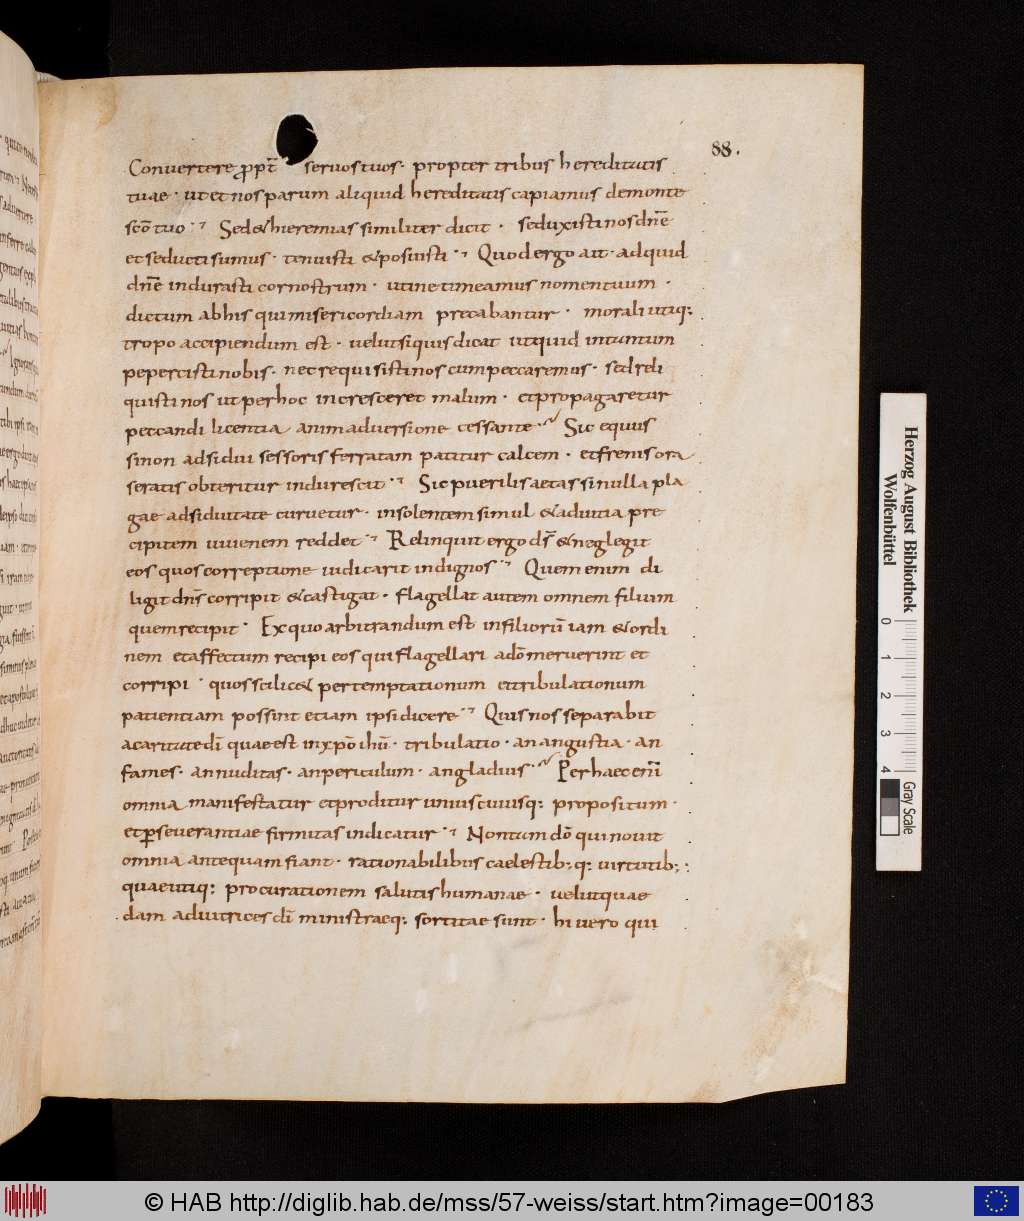 88.
Convertere ꝓpt̄ servos tuos· propter tribus hereditatis
tuae· ut et nos parum aliquid hereditatis capiamus demonte
sc̄o tuo·⁊ Sed & hieremias similiter dicit· seduxisti nos dn̄e
et seducti sumus· tenuisti & posuisti·⁊ Quod ergo ait· ad quid
dn̄e indurasti cor nostrum· uti ne timeamus nomen tuum·
dictum ab his qui misericordiam precabantur· morali utiq:
tropo accipiendum est· velut si quis dicat ut quid in tantum
pepercisti nobis· nec requisisti nos cum peccaremus· sed reli
quisti nos ut per hoc incresceret malum· et propagaretur
peccandi licentia animadversione cessante·⁊ Sic equus
si non adsidui sessoris ferratam patitur calcem· et frenis ora
seratis obteritur indurescit·⁊ Sic puerilis aetas si nulla pla
gae adsiduitate curvetur· insolentem simul & ad vitia pre
cipitem iuvenem reddet·⁊ Relinquit ergo ds̄ & neglegit
eos quos correptione iudicarit indignos·⁊ Quem enim di
ligit dn̄s corripit & castigat· flagellat autem omnem filium
quem recipit· Ex quo arbitrandum est in filiorū iam & ordi
nem et affectum recipi eos qui flagellari a dō meruerint et
corripi· quo scilic& per temptationum et tribulationum
patientiam possint etiam ipsi dicere·⁊ Quis nos separabit
a caritate dī quae est in xp̄o ihū· tribulatio· an angustia· an
fames· an nuditas· an periculum· an gladius·⁊ Per haec enī
omnia manifestatur et proditur uniuscuiusq: propositum·
et ꝑseverantiae firmitas indicatur·⁊ Non tum dō qui novit
omnia antequam fiant· rationabilibus caelestib;q: virtutib;:
quae utiq: procurationem salutis humanae· velut quae
dam adiutrices dī ministraeq: sortitae sunt· hi vero qui
Herzog August Bibliothek
Wolfenbüttel
0 1 2 3 4
Gray Scale
© HAB http://diglib.hab.de/mss/57-weiss/start.htm?image=00183